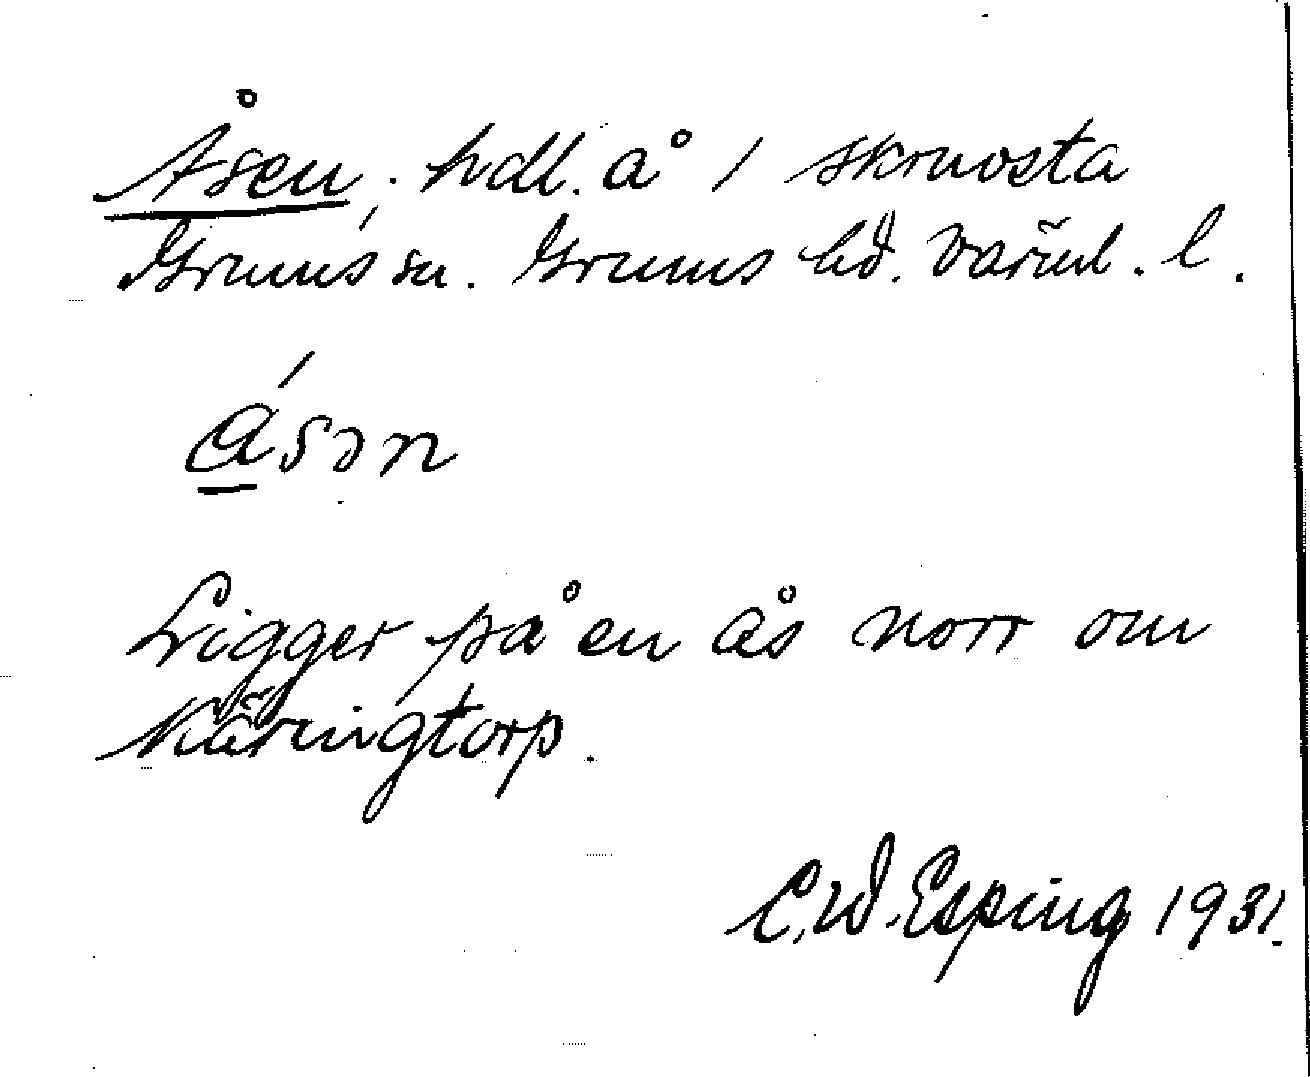 Åsen, hdl. å 1 skruvsta
Grums sn. Grums hd. Värml. l.
åsən
Ligger på en ås norr om
Käringtorp.
C.W. Esping 1931.